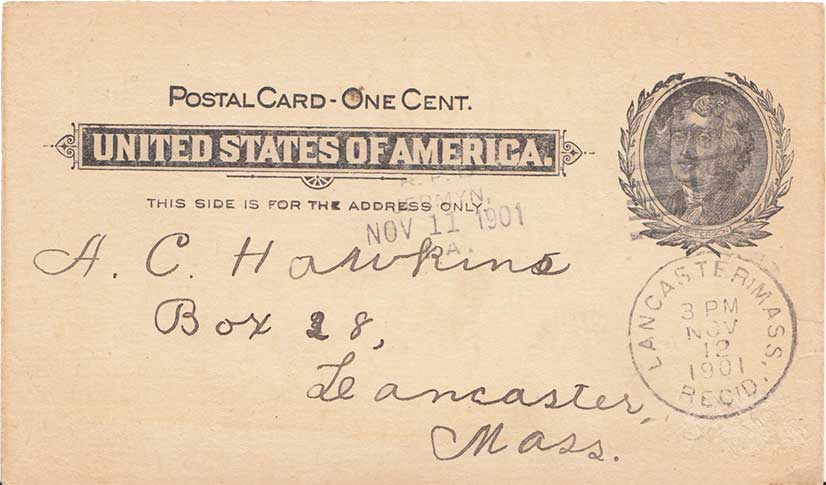 POSTAL CARD - ONE CENT.
UNITED STATES OF AMERICA.
THIS SIDE IS FOR THE ADDRESS ONLY.
NOV 11 1901
A. C. Hawkins
Box 28,
Lancaster,
Mass.
JEFFERSON
LANCASTER, MASS.
3 PM
NOV
12
1901
REC'D.